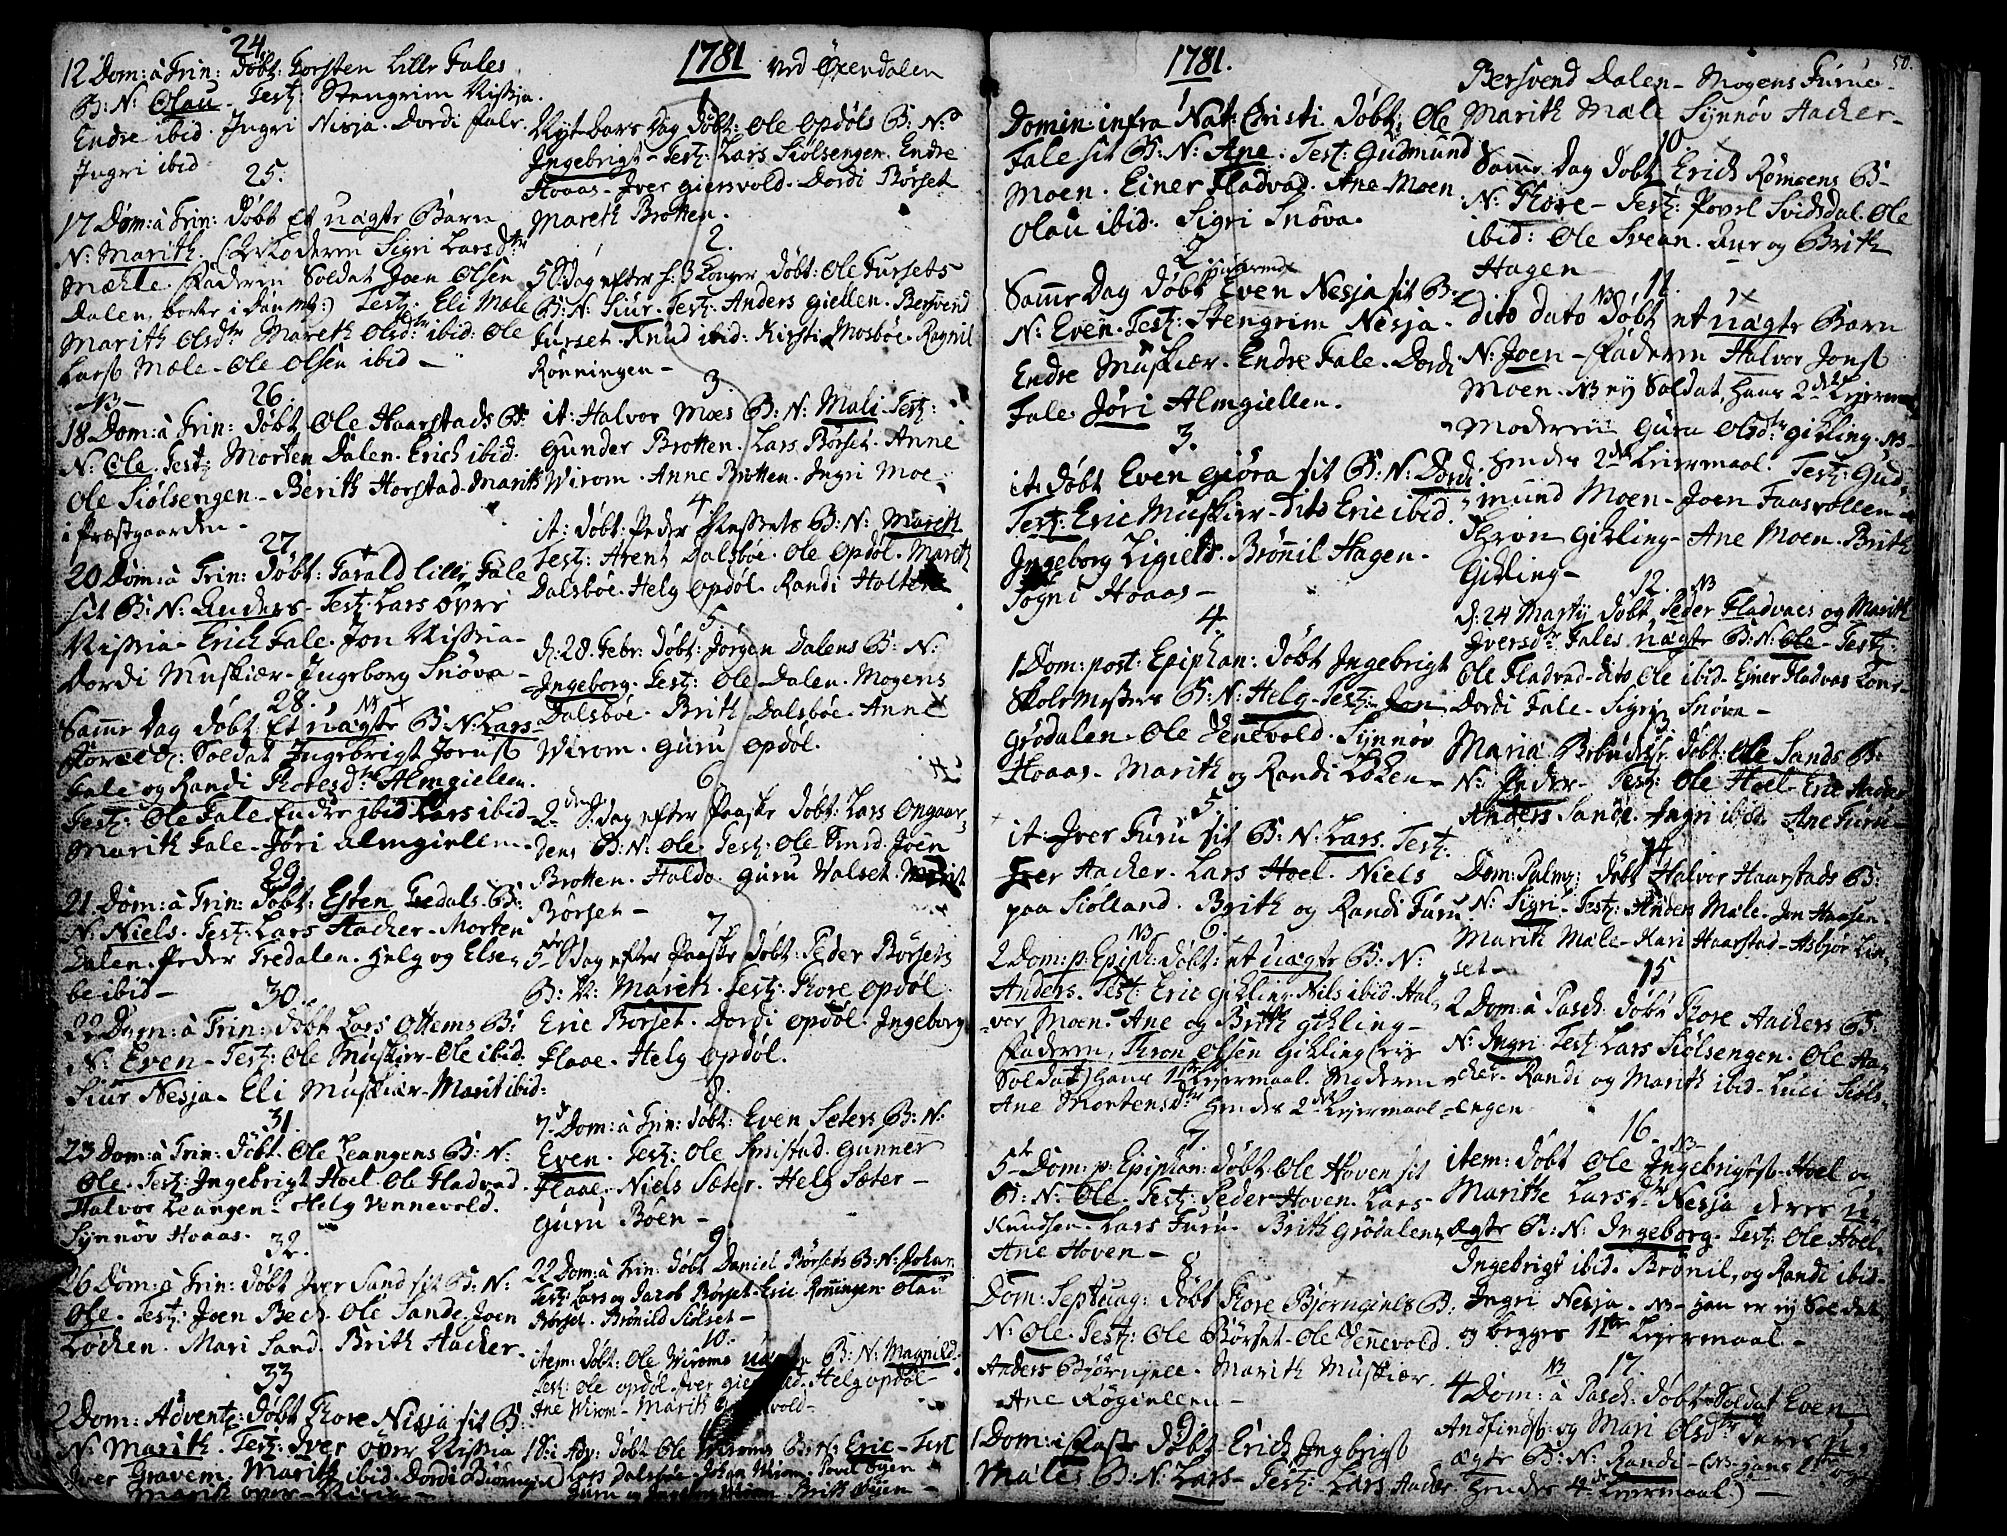 24.
12 Dom: à Trin: Döbt: Torsten Lille Fales
B: N: Olau. Test: Stengrim Nissja.
Endre ibid. Ingri Nisja. Dordi Fale.
Ingri ibid
25.
17 Dom: à Trin: Döbt Et uægte Barn
N: Marith. Moderen Sigri Larsdtr
Mæhle. Faderen Soldat Joen Olsen
Dalen, Test: Eli Mæle
Marith Olsdtr Mareth Olsdtr ibid: Ole
Lars Mæle. Ole Olsen ibid —
NB — 26.
18 Dom: à Trin: Döbt Ole Haarstads B:
N: Ole. Test: Morten Dalen. Erich ibid.
Ole Siölsengen. Berith Horstad. Marith
i Præstgaarden.
27.
20 Dom: à Trin: Döbt: Tarald Lille Fale
sit B: N: Anders. Test: Lars Övre
Nissia. Erich Fale. Jon Nissia.
Dordi Muskiær. Ingeborg Snöva.
28. NB
Samme Dag Döbt Et uægte B: N: Lars.
Foræld: Soldat Ingebrigt Joens.
Fale og Randi Floresdtr Almgiellen.
Test: Ole Fale. Endre ibid. Lars ibid.
Marith Fale. Jöri Almgiellen.
29.
21 Dom: à Trin: Döbt: Esten Tredals B:
N: Niels. Test: Lars Hacker. Morten
Dalen. Peder Tredalen. Helg og Else
be ibid —
30.
22 Dom: à Trin: Döbt Lars Ottems B:
N: Even. Test: Ole Muskier. Ole ibid.
Siur Nesja. Eli Muskiær. Marit ibid:
31.
23 Dom: à Trin: Döbt. Ole Leangens B: N:
Ole. Test: Ingebrigt Hoel. Ole Fladvad.
Halvor Leangen. Helg Vennevold.
Synnöv Hoaas.
32.
26 Dom: à Trin: Döbt Iver Sand sit B: N:
Ole. Test: Joen Bech. Ole Sande. Joen
Löchen. Mari Sand. Brith Hacker.
33
2 Dom: Advent: Döbt Flore Nisja sit B:
N: Marith. Test: Iver over Nissia
Iver Gravem. Marith ibid. Dordi
1781 ved Öxendalen
1
Nyt-Aars Dag Döbt: Ole Opdöls B: N:
Ingebrigt. Test: Lars Siölsengen. Endre
Hoaas. Iver Giersvold. Dordi Börset
Mareth Brotten.
2.
5 S: Dag efter h. 3 Konger Döbt: Ole Fursets
B: N: Siur. Test: Anders Giellen. Bersvend
Furset. Knud ibid. Kirsti Mosböe. Ragnil
Rönningen —
3
it: Halvor Moes B: N: Mali. Test:
Gunder Brotten. Lars Börset. Anne
Wirom. Anne Brotten. Ingri Moe.
4
it: Döbt: Peder B: N: Mareth
Test: Arent Dalsböe. Ole Opdöl. Mareth
Dalsböe. Helg Opdöl. Randi Holten
5.
d: 28. Febr: Döbt: Jörgen Dalens B: N:
Ingeborg. Test: Ole Dalen. Mogens
Dalsböe. Brith Dalsböe. Anne
Wirom. Guru Opdöl.
6
2 S: dag efter Paaske Döbt: Lars Ongaar-
dens B: N: Ole. Test: Ole Joen
Brotten. Haldo. Guru Valset.
Börset —
7
5 S: dag efter Paaske Döbt: Peder Börsets
B: N: Mareth. Test: Flore Opdöl
Eric Börset. Dordi Opdöl. Ingeborg
Flaae. Helg Opdöl.
8.
7 Dom: à Trin: Döbt: Even Seters B: N:
Even. Test: Ole Gunner
Flaae. Niels Sæter. Helg Sæter —
Guru Böen —
9.
22 Dom: à Trin: Döbt Daniel Börsets B: N: Johan
Test: Lars og Jacob Börset. Eric Rönningen. Olau
Börset. Brönild Siölset —
10.
item: Döbt: Ole Wiroms B: N: Magnild.
Test: Ole Opdöl. Iver Helg Opdöl
Ane Wirom. Marith
1 S: i Adv: Döbt Ole B: N: Eric. Test
Lars Dalsböe. Johan Wirom. Povel Öyen
Guru og Wirom. Brith Öyen —
1781.
1
Domin: infra Nat: Christi Döbt: Ole
Fale sit B: N: Ane. Test: Gudmund
Moen. Einer Fladvad. Ane Moen
Olau ibid. Sigri Snöva.
2
Samme Dag Döbt Even Nesja sit B:
N: Even. Test: Stengrim Nesja.
Endre Muskiær. Endre Fale. Dordi
Fale. Jöri Almgiellen.
3.
it: Döbt Even Giöra sit B: N: Dordi
Test: Eric Muskier. Dito Eric ibid.
Ingeborg Brönnil Hagen.
Sogni Hoaas —
4.
1 Dom: post: Epiphan: Döbt Ingebrigt
Skolemesters B: N: Helg. Test: Jon
Grödalen. Ole Venevold. Synnöv
Hoaas. Marith og Randi Löken —
5
it: Iver Furu sit B: N: Lars. Test:
Iver Hacker. Lars Hoel. Niels
paa Siölland. Brith og Randi Furu
NB 6.
2 Dom: p: Epiph: Döbt: et uægte B: N:
Anders. Test: Eric Gikling. Nils ibid. Hal-
vor Moen. Ane og Brith Gikling —
Faderen, Thron Olsen Gikling (ny
Soldat) hans 1ste Lejermaal. Moderen
Ane Mortensdtr hendes 2det Lejermaal
7.
5te Dom: p: Epiphan: Döbt: Ole Hoven sit
B: N: Ole. Test: Peder Hoven. Lars
Knudsen. Lars Furu. Brith Grödalen
Ane Hoven —
8
Dom: Septuag: Döbt Flore Bjorngiels B:
N: Ole. Test: Ole Börset. Ole Vennevold.
Anders Björngiell. Marith Muskiær.
Ane
9
1 Dom: i Faste Döbt Erich Ingbrigts
Mæles B: N: Lars. Test: Lars Hacker
50.
Bersvend Dalen. Mogens Furue.
Marith Mæle. Synnöv Hacker.
10
Samme Dag Döbt Erich Römoens B:
N: Flore. Test: Povel Svidsdal. Ole
ibid: Ole Svean. og Brith
Hagen
NB 11.
Dito Dato Döbt et uægte Barn
N: Joen. Faderen Halvor Jons
Moen. NB ny Soldat, hans 2det Lejermaal
Moderen Guru Olsdtr Gikling. NB
hendes 2det Lejermaal. Test: Gud-
mund Moen. Joen Faasvollen
Thron Gikling. Ane Moen. Brith
Gikling —
12. NB
d: 24 Martij Döbt Peder Fladvads og Marith
Iversdtr Fales uægte B: N: Ole. Test:
Ole Fladvad. dito Ole ibid. Ejner Fladvad
Dordi Fale. Sigri Snöva —
13
Mariæ Döbt: Ole Sands B:
N: Peder. Test: Ole Hoel. Eric Hacker
Anders Sande. Ingri ibid. Ane Furu
14
Dom: Palm: Döbt Halvor Haarstads B:
N: Sigri. Test: Anders Mæle. Jon Haasen.
Marith Mæle. Kari Haarstad. Asbjör Lin-
set —
15
2 Dom: à Pasch: Döbt Flore Hackers B:
N: Ingri. Test: Lars Siölsengen. Ole Ha-
cker. Randi og Marith ibid. Luci Siöls-
engen
16. NB
item: Döbt Ole Ingebrigts. Hoel og
Marithe Larsdtr Nesja deres u-
ægte B: N: Ingeborg. Test: Ole Hoel.
Ingebrigt ibid. Brönil, og Randi ibid.
Ingri Nesja. NB — han er ny Soldat
og begges 1ste Lejermaal —
NB 17.
4 Dom: à Pasch: Döbt Soldat Even
Andfinds: og Mari Olsdtr deres u-
ægte B: N: Randi — (NB hans 1ste og
hendes 4de Lejermaal) —